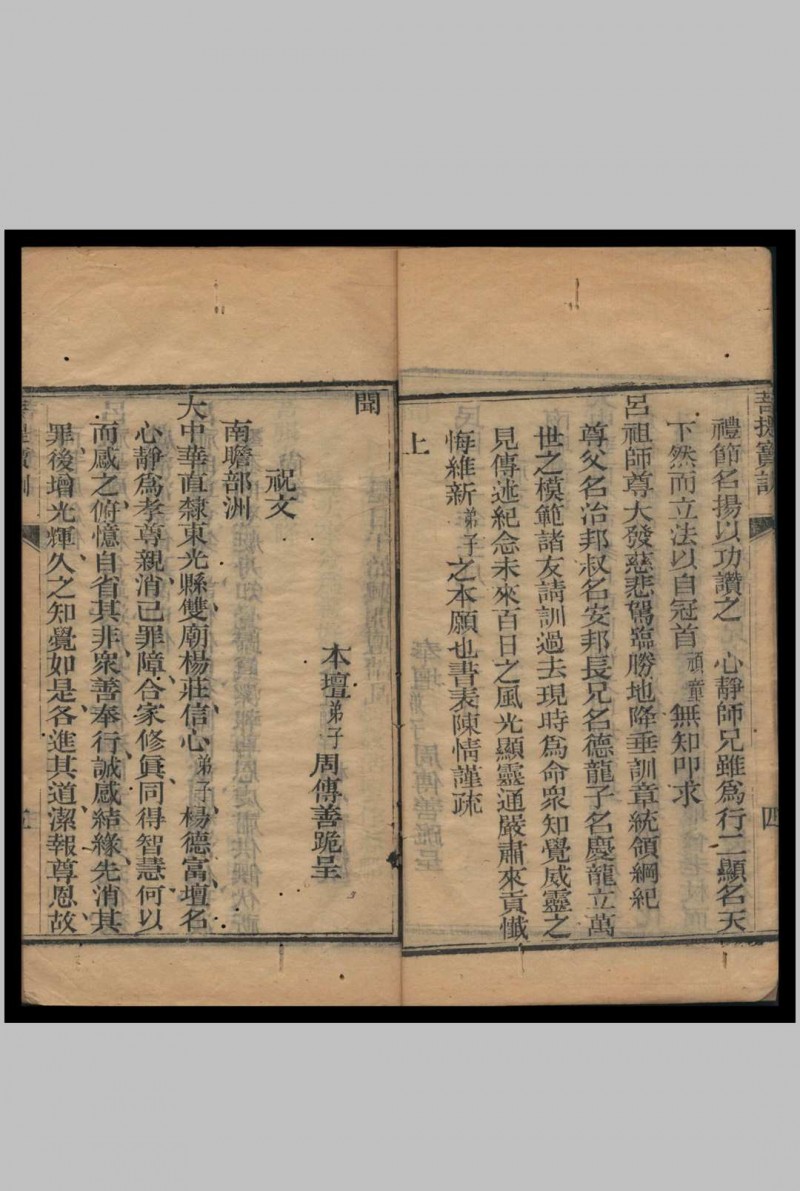 菩提寶訓
四
禮節名揚以功讚之　心靜師兄雖爲行二顯名天
下然而立法以自冠首頑童無知叩求
呂祖師尊大發慈悲駕臨勝地降垂訓章統領綱紀
尊父名治邦叔名安邦長兄名德龍子名慶龍立萬
世之模範諸友請訓過去現時爲命衆知覺威靈之
見傳述紀念未來百日之風光顯靈通嚴肅來貢懺
悔維新弟子之本願也書表陳情謹疏
上
聞
本壇弟子周傳善跪呈
祝文
南瞻部洲
大中華直隸東光縣雙廟楊莊信心弟子楊德富壇名
心靜爲孝尊親消己罪障合家修眞同得智慧何以
而感之俯憶自省其非衆善奉行誠感結緣先消其
罪後增光輝久之知覺如是各進其道潔報尊恩故